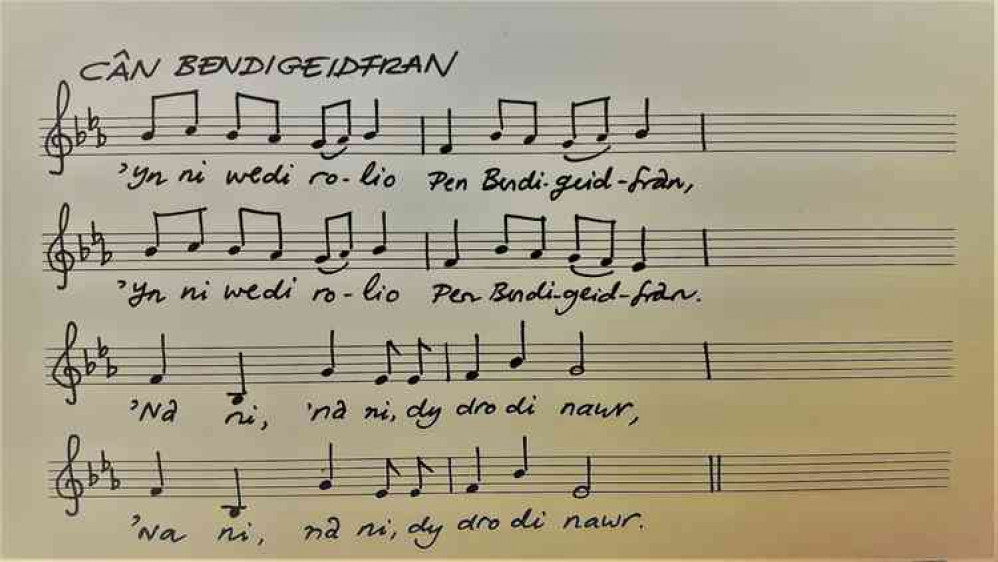 CÂN BENDIGEIDFRAN
'Yn ni wedi ro-lio Pen Bendi-geid-frân,
'Yn ni wedi ro-lio Pen Bendi-geid-frân.
'Nâ ni, 'nâ ni, dy dro di nawr,
'Na ni, nâ ni, dy dro di nawr.